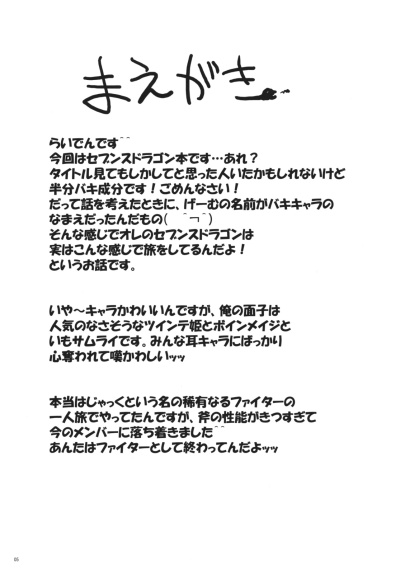 まえがき
らいでんです^^
今回はセブンスドラゴン本です…あれ？
タイトル見てもしかしてと思った人いたかもしれないけど
半分バキ成分です！ごめんなさい！
だって話を考えたときに、げーむの名前がバキキャラの
なまえだったんだもの(　´¬｀)
そんな感じでオレのセブンスドラゴンは
実はこんな感じで旅をしてるんだよ！
というお話です。
いや～キャラかわいいんですが、俺の面子は
人気のなさそうなツインテ姫とボインメイジと
いもサムライです。みんな耳キャラにばっかり
心奪われて嘆かわしいッッ
本当はじゃっくという名の稀有なるファイターの
一人旅でやってたんですが、斧の性能がきつすぎて
今のメンバーに落ち着きました^^
あんたはファイターとして終わってんだよッッ
05